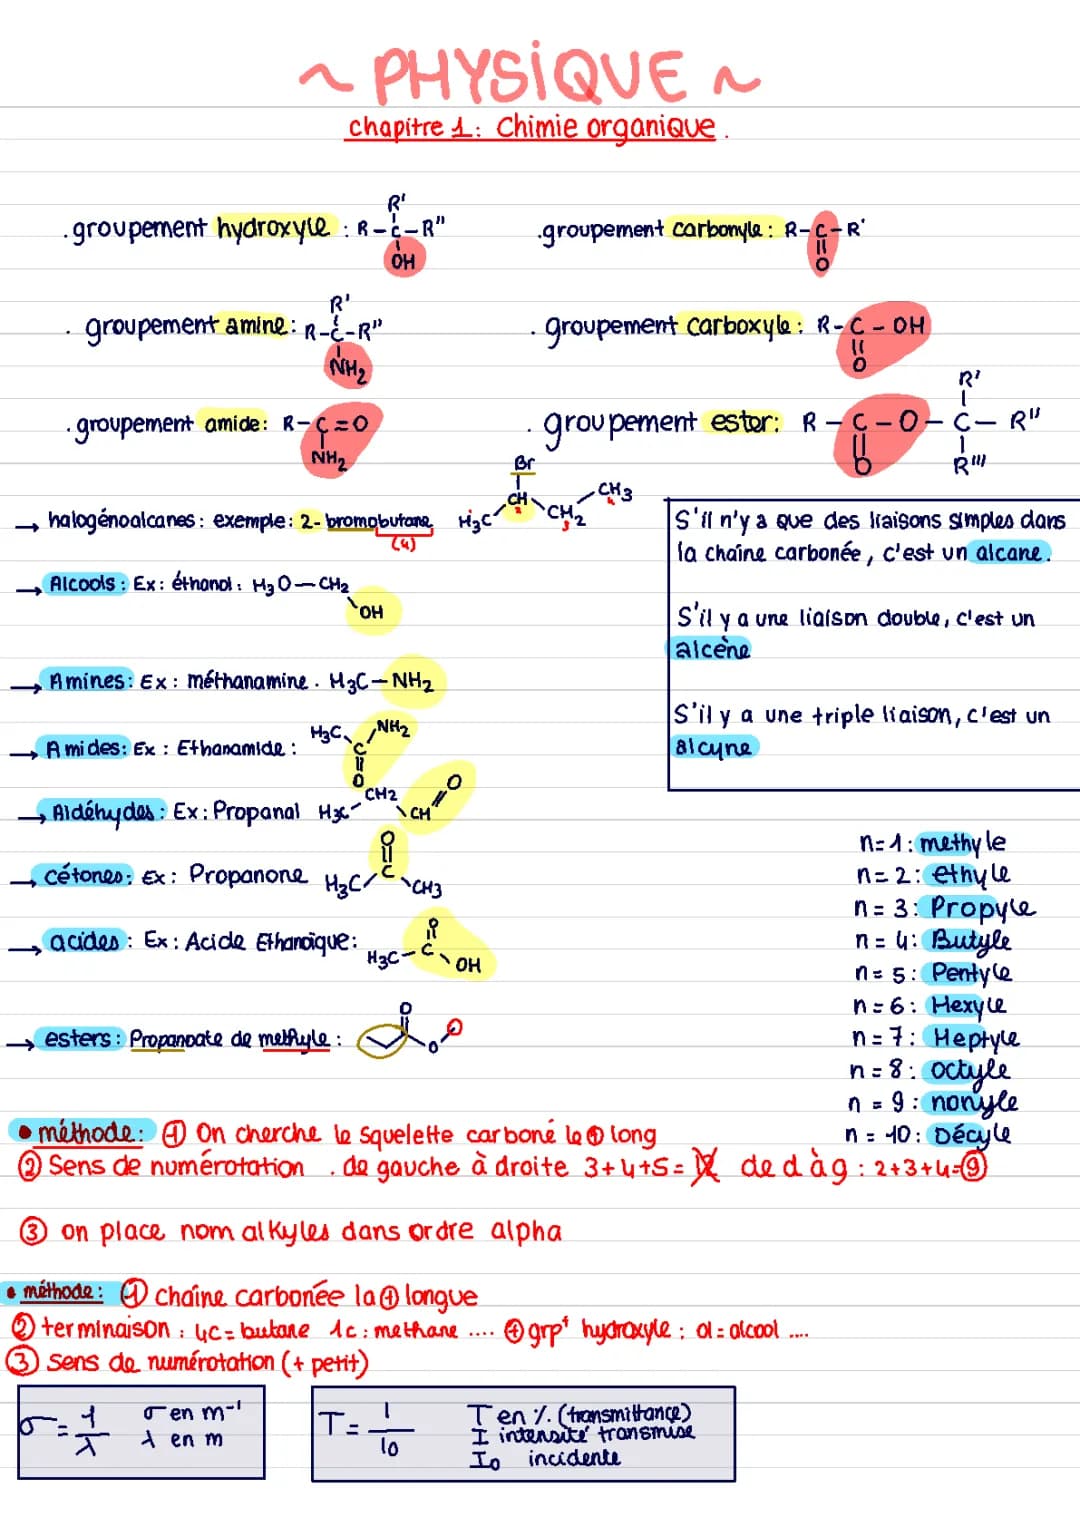 ~ PHYSIQUE ~
chapitre 1: Chimie organique.
R'
.groupement hydroxyle : R-C-R"
OH
.groupement carbonyle : R-C-R'
O
R'
. groupement amine: R-C-R"
NH2
. groupement carboxyle: R-C-OH
O
.groupement amide: R-C=O
NH2
R'
. groupement ester: R-C-O-C-R"
O R'''
Br
→ halogénoalcanes: exemple: 2-bromobutane H3C CH CH2 CH3
(4) 2 3 4
→ Alcools: Ex: éthanol: H3O-CH2
OH
→ Amines: Ex: méthanamine. H3C-NH2
→ Amides: Ex: Ethanamide: H3C C NH2
O
→ Aldéhydes: Ex: Propanal H3C CH2 CH O
→ cétones: Ex: Propanone H3C C CH3
O
→ acides: Ex: Acide Ethanoïque: H3C-C OH
O
→ esters: Propanoate de methyle: O O
S'il n'y a que des liaisons simples dans
la chaîne carbonée, c'est un alcane.
S'il y a une liaison double, c'est un
alcène
S'il y a une triple liaison, c'est un
alcyne
n=1: methyle
n=2: ethyle
n=3: Propyle
n=4: Butyle
n=5: Pentyle
n=6: Hexyle
n=7: Heptyle
n=8: octyle
n=9: nonyle
n=10: Décyle
• méthode: ① On cherche le squelette carboné le ⊕ long
② Sens de numérotation . de gauche à droite 3+4+5=12 de d à g: 2+3+4=9
③ on place nom alkyles dans ordre alpha
• méthode: ① chaîne carbonée la ⊕ longue
② terminaison: 4C=butane 1c: methane .... ⊕ grpt hydroxyle: ol=alcool ....
③ sens de numérotation (+ petit)
σ=1/λ σ en m-1
λ en m
T=I/I0 T en % (transmittance)
I intensité transmise
I0 incidente